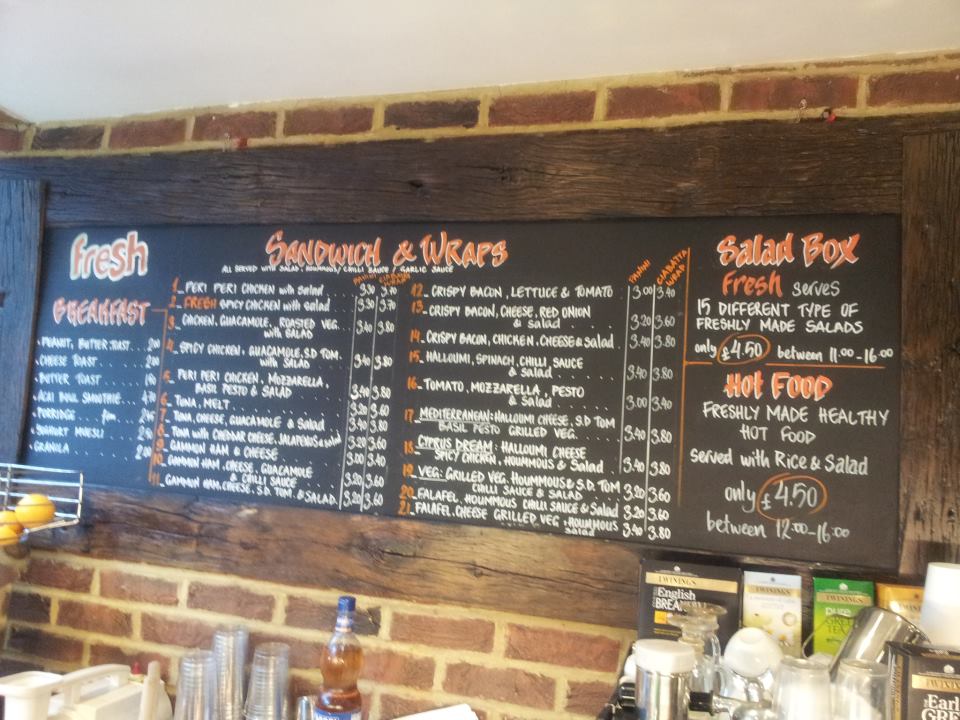 fresh
BREAKFAST
PEANUT, BUTTER TOAST . . 2.00
CHEESE TOAST . . . 2.00
BUTTER TOAST . . . 1.90
ACAI BOWL SMOOTHIE . 4.70
PORRIDGE . . from . . 2.45
YOGHURT MUESLI . .
GRANOLA . . . . . 2.00
SANDWICH & WRAPS
ALL SERVED WITH SALAD, HOUMMOUS/ CHILLI SAUCE / GARLIC SAUCE
PANINI CIABATTA WRAP
1 PERI PERI CHICKEN with Salad 3.30 3.70
2 FRESH SPICY CHICKEN with Salad 3.30 3.70
3 CHICKEN, GUACAMOLE, ROASTED VEG.
with SALAD 3.40 3.80
4 SPICY CHICKEN, GUACAMOLE, S.D TOM.
with SALAD 3.40 3.80
5 PERI PERI CHICKEN, MOZZARELLA,
BASIL PESTO & SALAD 3.40 3.80
6 TUNA, MELT . . . 3.20 3.60
7 TUNA, CHEESE, GUACAMOLE & Salad 3.40 3.80
8 TUNA with CHEDDAR CHEESE, JALAPENOS & salad 3.20 3.60
9 GAMMON HAM & CHEESE 3.00 3.40
10 GAMMON HAM, CHEESE, GUACAMOLE
& CHILLI SAUCE 3.20 3.60
11 GAMMON HAM, CHEESE, S.D. TOM. & SALAD 3.20 3.60
PANINI CIABATTA WRAP
12 CRISPY BACON, LETTUCE & TOMATO 3.00 3.40
13 CRISPY BACON, CHEESE, RED ONION
& Salad . . . 3.20 3.60
14 CRISPY BACON, CHICKEN, CHEESE & Salad 3.40 3.80
15 HALLOUMI, SPINACH, CHILLI, SAUCE
& Salad . . . 3.40 3.80
16 TOMATO, MOZZARELLA, PESTO
& Salad . . . 3.00 3.40
17 MEDITERRANEAN: HALLOUMI CHEESE, S.D TOM
BASIL PESTO GRILLED VEG. . . 3.40 3.80
18 CYPRUS DREAM: HALLOUMI CHEESE
SPICY CHICKEN, HOUMMOUS & Salad 3.40 3.80
19 VEG: GRILLED VEG, HOUMMOUS & S.D. TOM
CHILLI SAUCE & SALAD 3.20 3.60
20 FALAFEL, HOUMMOUS CHILLI SAUCE & Salad 3.20 3.60
21 FALAFEL, CHEESE GRILLED VEG, HOUMMOUS
salad 3.40 3.80
Salad Box
Fresh serves
15 DIFFERENT TYPE OF
FRESHLY MADE SALADS
only £4.50 between 11.00-16.00
Hot Food
FRESHLY MADE HEALTHY
HOT FOOD
served with Rice & Salad
only £4.50
between 12.00-16.00
TWININGS
English
BREA
TWININGS
TWININGS
pure
GREEN
TEA
TWININGS
TWININGS
Earl